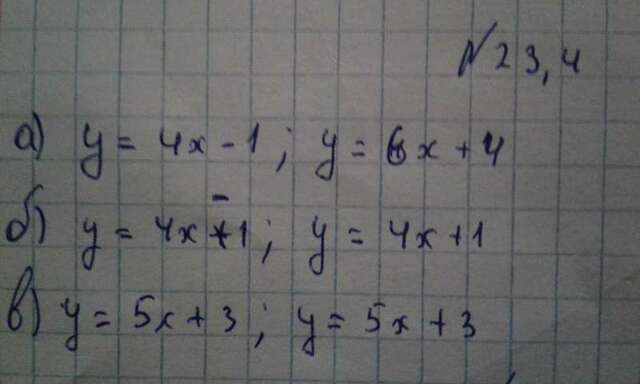 № 23,4
а) y = 4x - 1; y = 6x + 4
б) y = 4x - 1; y = 4x + 1
в) y = 5x + 3; y = 5x + 3